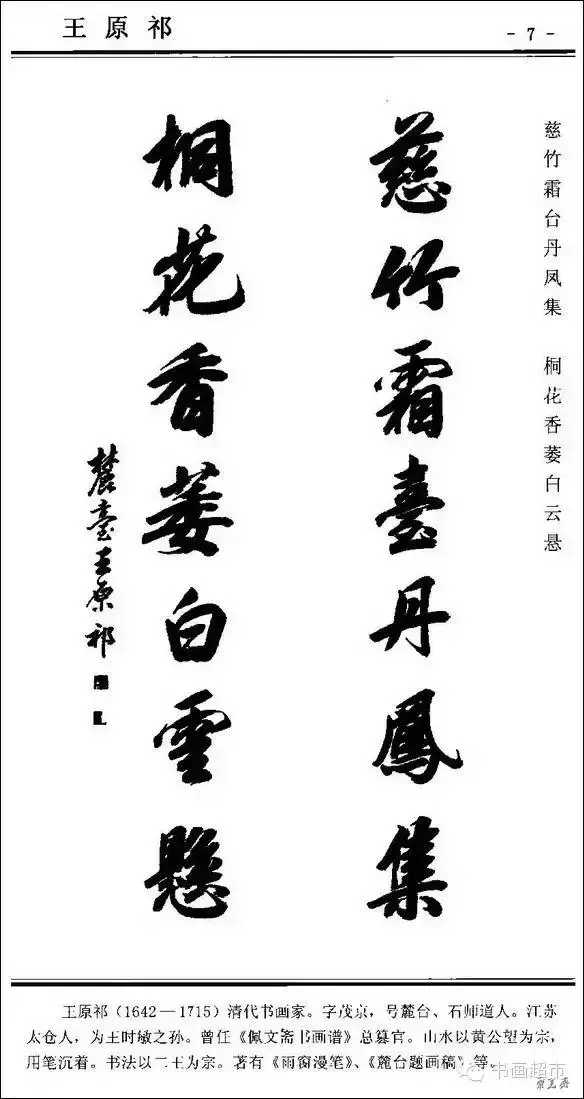 王原祁
- 7 -
慈竹霜台丹凤集 桐花香萎白云悬
慈竹霜臺丹鳳集
桐花香萎白雲懸
麓臺王原祁
王原祁（1642—1715）清代书画家。字茂京，号麓台、石师道人。江苏
太仓人，为王时敏之孙。曾任《佩文斋书画谱》总纂官。山水以黄公望为宗，
用笔沉着。书法以二王为宗。著有《雨窗漫笔》、《麓台题画稿》等。
书画超市